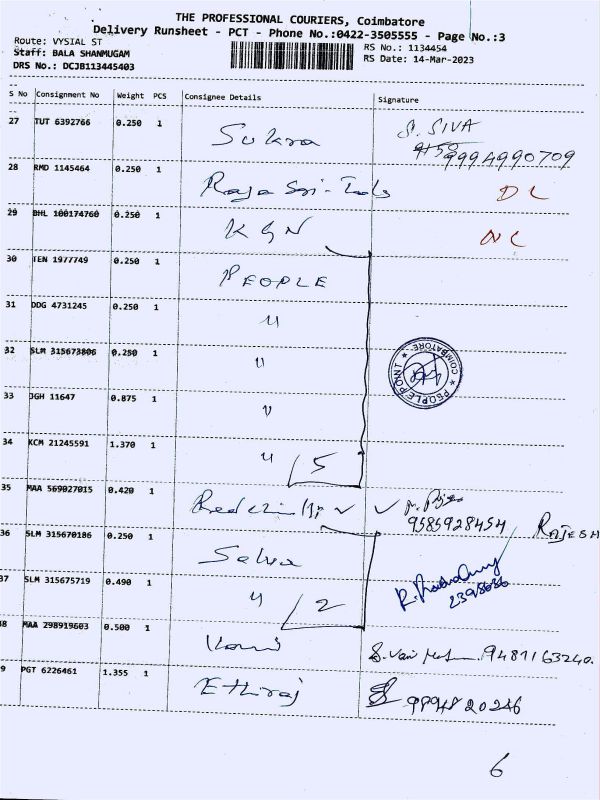 THE PROFESSIONAL COURIERS, Coimbatore
Delivery Runsheet - PCT - Phone No.:0422-3505555 - Page No.:3
Route: VYSIAL ST
Staff: BALA SHANMUGAM
DRS No.: DCJB113445403
RS No.: 1134454
RS Date: 14-Mar-2023
S No Consignment No Weight PCS Consignee Details Signature
27 TUT 6392766 0.250 1 Sukra S. SIVA
9994990709
28 RMD 1145464 0.250 1 DL
29 BHL 100174760 0.250 1 KGN NL
30 TEN 1977749 0.250 1 PEOPLE
31 DDG 4731245 0.250 1 〃
32 SLM 315673806 0.250 1 〃
PEOPLE POINT ★ COIMBATORE ★
33 JGH 11647 0.875 1 〃
34 KCM 21245591 1.370 1 〃 5
35 MAA 569027015 0.420 1
9585928454 RAJESH
36 SLM 315670186 0.250 1 Selva
37 SLM 315675719 0.490 1 〃 2
2398686
38 MAA 298919603 0.500 1 9481163240.
39 PGT 6226461 1.355 1 Ethiraj 9894820246
6